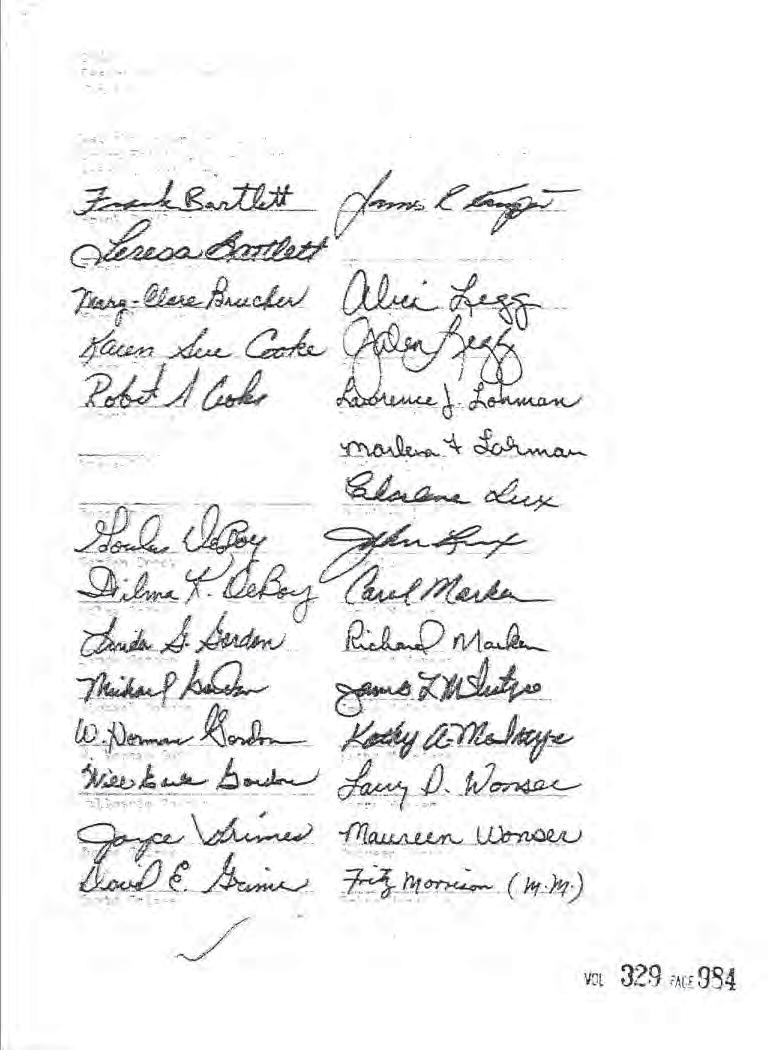 Frank Bartlett
James R
Teresa Bartlett
Mary-Clare Brucher
Karen Sue Cooke
Robert A Cooke
Gordon DeBoy
Wilma K. DeBoy
Linda G. Gordon
Michael Gordon
W. Norman Gordon
Gordon
Joyce Grimes
David E. Grimes
Alice Legg
Galen Legg
Lawrence J. Lohman
Marlena F Lohman
Charlene Lux
John Lux
Carol Marken
Richard Marken
James L McIntyre
Kathy A. McIntyre
Larry D. Wonser
Maureen Wonser
Fritz Morrison (M.M.)
VOL 329 PAGE 984